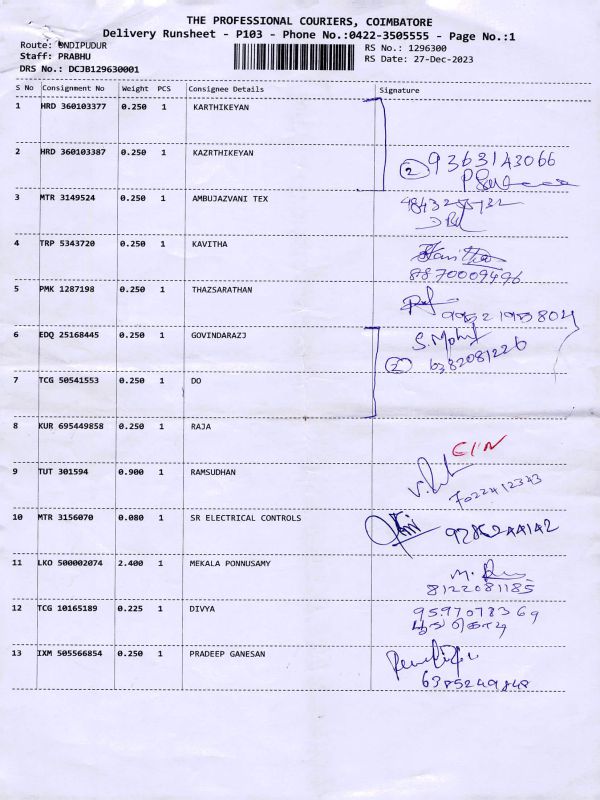 THE PROFESSIONAL COURIERS, COIMBATORE
Delivery Runsheet - P103 - Phone No.:0422-3505555 - Page No.:1
Route: ONDIPUDUR
RS No.: 1296300
Staff: PRABHU
RS Date: 27-Dec-2023
DRS No.: DCJB129630001
S No Consignment No Weight PCS Consignee Details Signature
1 HRD 360103377 0.250 1 KARTHIKEYAN
2 HRD 360103387 0.250 1 KAZRTHIKEYAN
2 9363143066
3 MTR 3149524 0.250 1 AMBUJAZVANI TEX
4 TRP 5343720 0.250 1 KAVITHA
Kavitha
8870009496
5 PMK 1287198 0.250 1 THAZSARATHAN
6 EDQ 25168445 0.250 1 GOVINDARAZJ
S. Mohan
2 6382081226
7 TCG 50541553 0.250 1 DO
8 KUR 695449858 0.250 1 RAJA
9 TUT 301594 0.900 1 RAMSUDHAN
7022412343
10 MTR 3156070 0.080 1 SR ELECTRICAL CONTROLS
11 LKO 500002074 2.400 1 MEKALA PONNUSAMY
8122081185
12 TCG 10165189 0.225 1 DIVYA
9597078369
பூங்கொடி
13 IXM 505566854 0.250 1 PRADEEP GANESAN
6385249848